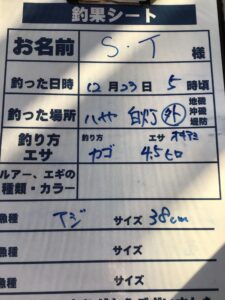 釣果シート
お名前 S.T 様
釣った日時 12月23日 5時頃
釣った場所 ハヤ 白灯 外 地磯 沖磯 堤防
釣り方 エサ 釣り方 カゴ エサ オキアミ 4.5ヒロ
ルアー、エギの種類・カラー
魚種 アジ サイズ 38cm
魚種 サイズ
魚種 サイズ